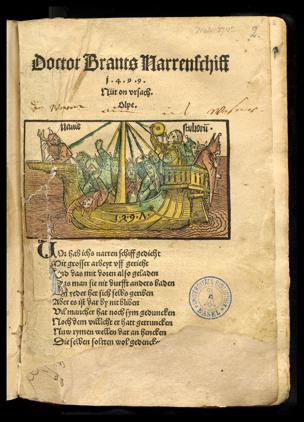 2.
Doctor Brants Narrenschiff
1.4.9.9.
Nüt on vrsach.
Olpe.
Nauis stultorū.
1.4.9.Λ.
Vor hab ichs narren schiff gedicht
Mit grosser arbeyt vff gericht
Vnd das mit doren also geladen
Das man sie nit durfft anders baden
Ein yeder het sich selbs geriben
Aber es ist dar by nit bliben
Vil mancher hat noch sym geduncken
Noch dem villicht er hatt getruncken
Nuw rymen wellen dar an hencken
Die selben soltten wol gedencken
BASEL